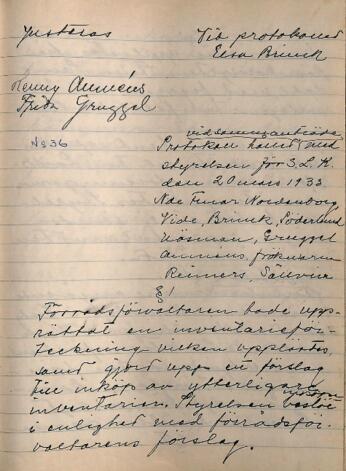 Justeras
Vid protokollet
Elsa Brinck
Henny Aumèns
Frida Gruggel
No 36
vid sammanträde
Protokoll hållet med
styrelsen för S.L.K.
den 20 mars 1933.
Nde Fruar Nordenborg,
Vide, Brinck, Söderlund
Nösman, Gruggel
Aumèns, fröknarna
Reimers, Sällvin
§ 1
Förrådsförvaltaren hade upp-
rättat en inventarieför-
teckning vilken upplästes,
samt gjort upp ett förslag
till inköp av ytterligare
inventarier. Styrelsen beslöt
i enlighet med förrådsför-
valtarens förslag.